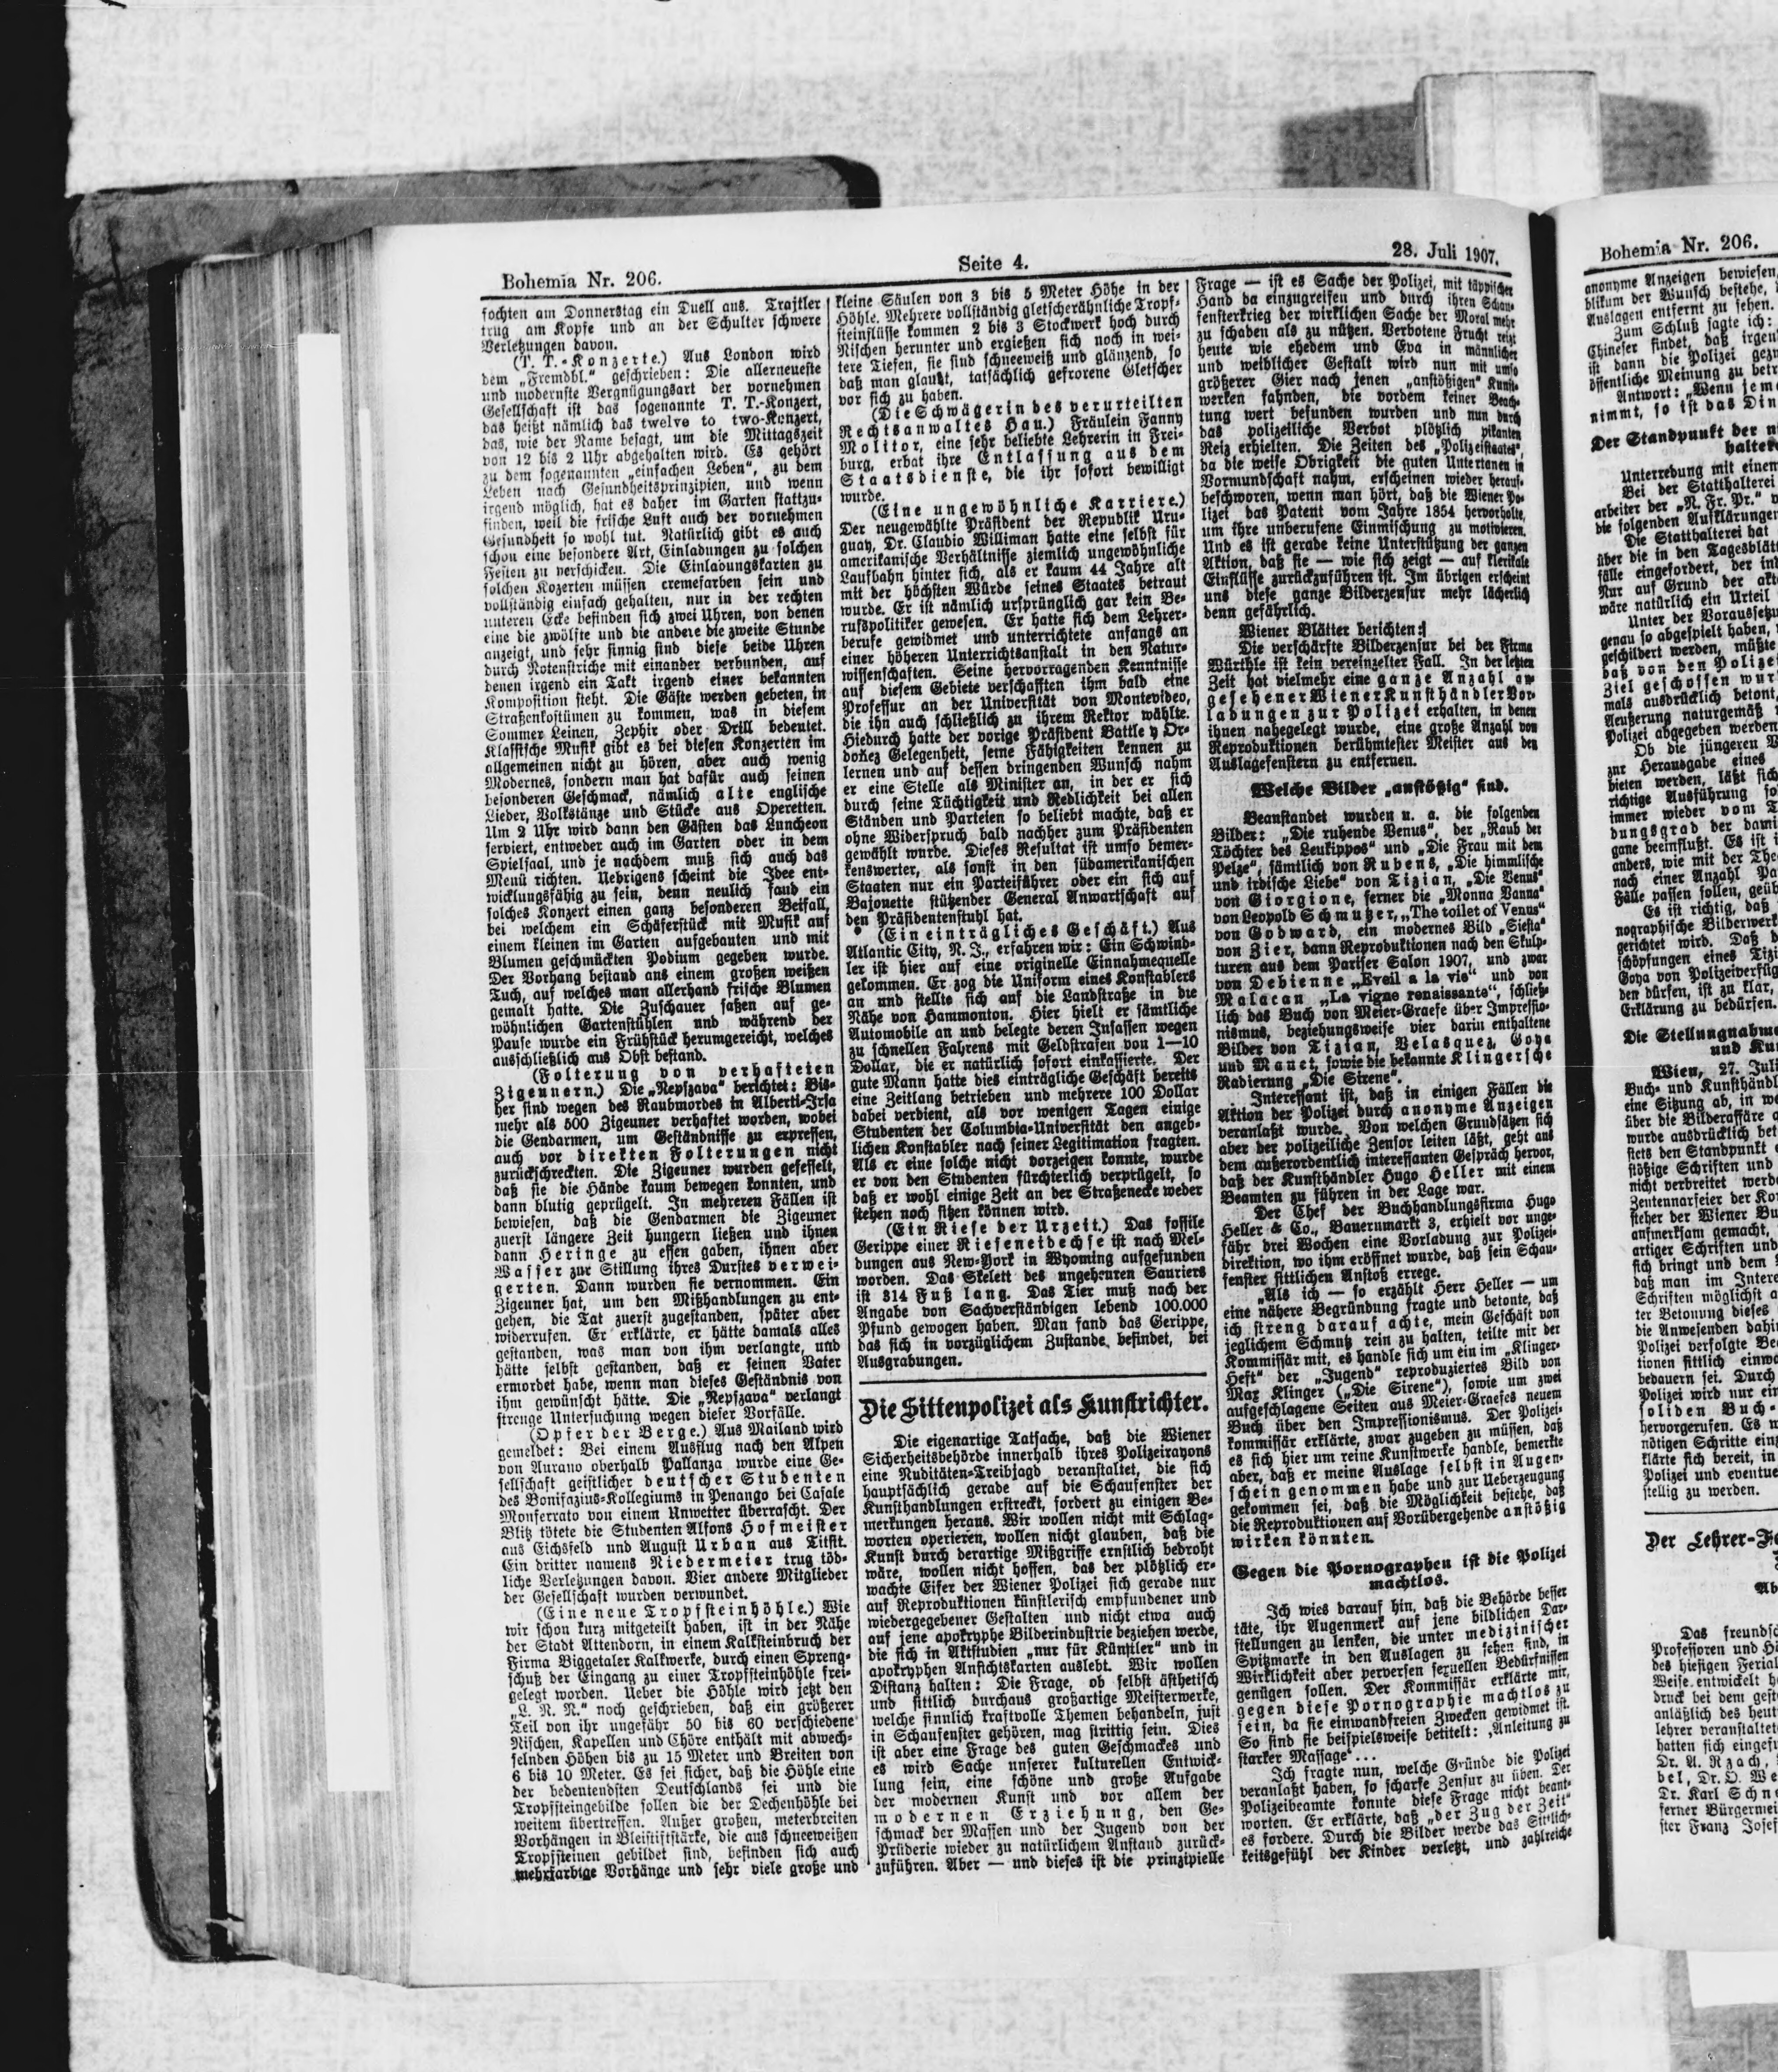 Bohemia Nr. 206.
Seite 4.
28. Juli 1907.
fochten am Donnerstag ein Duell aus. Trajtler
trug am Kopfe und an der Schulter schwere
Verletzungen davon.
(T. T.-Konzerte.) Aus London wird
dem „Fremdbl.“ geschrieben: Die allerneueste
und modernste Vergnügungsart der vornehmen
Gesellschaft ist das sogenannte T. T.-Konzert,
das heißt nämlich das twelve to two-Konzert,
das, wie der Name besagt, um die Mittagszeit
von 12 bis 2 Uhr abgehalten wird. Es gehört
zu dem sogenannten „einfachen Leben“, zu dem
Leben nach Gesundheitsprinzipien, und wenn
irgend möglich, hat es daher im Garten stattzu-
finden, weil die frische Luft auch der vornehmen
Gesundheit so wohl tut. Natürlich gibt es auch
schon eine besondere Art, Einladungen zu solchen
Festen zu verschicken. Die Einladungskarten zu
solchen Kozerten müssen cremefarben sein und
vollständig einfach gehalten, nur in der rechten
unteren Ecke befinden sich zwei Uhren, von denen
eine die zwölfte und die andere die zweite Stunde
anzeigt, und sehr sinnig sind diese beide Uhren
durch Notenstriche mit einander verbunden, auf
denen irgend ein Takt irgend einer bekannten
Komposition steht. Die Gäste werden gebeten, in
Straßenkostümen zu kommen, was in diesem
Sommer Leinen, Zephir oder Drill bedeutet.
Klassische Musik gibt es bei diesen Konzerten im
allgemeinen nicht zu hören, aber auch wenig
Modernes, sondern man hat dafür auch seinen
besonderen Geschmack, nämlich alte englische
Lieder, Volkstänze und Stücke aus Operetten.
Um 2 Uhr wird dann den Gästen das Luncheon
serviert, entweder auch im Garten oder in dem
Spielsaal, und je nachdem muß sich auch das
Menü richten. Uebrigens scheint die Idee ent-
wicklungsfähig zu sein, denn neulich fand ein
solches Konzert einen ganz besonderen Beifall,
bei welchem ein Schäferstück mit Musik auf
einem kleinen im Garten aufgebauten und mit
Blumen geschmückten Podium gegeben wurde.
Der Vorhang bestand aus einem großen weißen
Tuch, auf welches man allerhand frische Blumen
gemalt hatte. Die Zuschauer saßen auf ge-
wöhnlichen Gartenstühlen und während der
Pause wurde ein Frühstück herumgereicht, welches
ausschließlich aus Obst bestand.
(Folterung von verhafteten
Zigeunern.) Die „Nepszava“ berichtet: Bis-
her sind wegen des Raubmordes in Alberti-Irsa
mehr als 500 Zigeuner verhaftet worden, wobei
die Gendarmen, um Geständnisse zu erpressen,
auch vor direkten Folterungen nicht
zurückschreckten. Die Zigeuner wurden gefesselt,
daß sie die Hände kaum bewegen konnten, und
dann blutig geprügelt. In mehreren Fällen ist
bewiesen, daß die Gendarmen die Zigeuner
zuerst längere Zeit hungern ließen und ihnen
dann Heringe zu essen gaben, ihnen aber
Wasser zur Stillung ihres Durstes verwei-
gerten. Dann wurden sie vernommen. Ein
Zigeuner hat, um den Mißhandlungen zu ent-
gehen, die Tat zuerst zugestanden, später aber
widerrufen. Er erklärte, er hätte damals alles
gestanden, was man von ihm verlangte, und
hätte selbst gestanden, daß er seinen Vater
ermordet habe, wenn man dieses Geständnis von
ihm gewünscht hätte. Die „Nepszava“ verlangt
strenge Untersuchung wegen dieser Vorfälle.
(Opfer der Berge.) Aus Mailand wird
gemeldet: Bei einem Ausflug nach den Alpen
von Aurano oberhalb Pallanza wurde eine Ge-
sellschaft geistlicher deutscher Studenten
des Bonifazius-Kollegiums in Penango bei Casale
Monferrato von einem Unwetter überrascht. Der
Blitz tötete die Studenten Alfons Hofmeister
aus Eichsfeld und August Urban aus Titsit.
Ein dritter namens Niedermeier trug töd-
liche Verletzungen davon. Vier andere Mitglieder
der Gesellschaft wurden verwundet.
(Eine neue Tropfsteinhöhle.) Wie
wir schon kurz mitgeteilt haben, ist in der Nähe
der Stadt Attendorn, in einem Kalksteinbruch der
Firma Biggetaler Kalkwerke, durch einen Spreng-
schuß der Eingang zu einer Tropfsteinhöhle frei-
gelegt worden. Ueber die Höhle wird jetzt den
„L. N. N.“ noch geschrieben, daß ein größerer
Teil von ihr ungefähr 50 bis 60 verschiedene
Nischen, Kapellen und Chöre enthält mit abwech-
selnden Höhen bis zu 15 Meter und Breiten von
6 bis 10 Meter. Es sei sicher, daß die Höhle eine
der bedeutendsten Deutschlands sei und die
Tropfsteingebilde sollen die der Dechenhöhle bei
weitem übertreffen. Außer großen, meterbreiten
Vorhängen in Bleistiftstärke, die aus schneeweißen
Tropfsteinen gebildet sind, befinden sich auch
mehrfarbige Vorhänge und sehr viele große und
kleine Säulen von 3 bis 5 Meter Höhe in der
Höhle. Mehrere vollständig gletscherähnliche Tropf-
steinflüsse kommen 2 bis 3 Stockwerk hoch durch
Nischen herunter und ergießen sich noch in wei-
tere Tiefen, sie sind schneeweiß und glänzend, so
daß man glaubt, tatsächlich gefrorene Gletscher
vor sich zu haben.
(Die Schwägerin des verurteilten
Rechtsanwaltes Hau.) Fräulein Fanny
Molitor, eine sehr beliebte Lehrerin in Frei-
burg, erbat ihre Entlassung aus dem
Staatsdienste, die ihr sofort bewilligt
wurde.
(Eine ungewöhnliche Karriere.)
Der neugewählte Präsident der Republik Uru-
guay, Dr. Claudio Williman hatte eine selbst für
amerikanische Verhältnisse ziemlich ungewöhnliche
Laufbahn hinter sich, als er kaum 44 Jahre alt
mit der höchsten Würde seines Staates betraut
wurde. Er ist nämlich ursprünglich gar kein Be-
rufspolitiker gewesen. Er hatte sich dem Lehrer-
berufe gewidmet und unterrichtete anfangs an
einer höheren Unterrichtsanstalt in den Natur-
wissenschaften. Seine hervorragenden Kenntnisse
auf diesem Gebiete verschafften ihm bald eine
Professur an der Universität von Montevideo,
die ihn auch schließlich zu ihrem Rektor wählte.
Hiedurch hatte der vorige Präsident Battle y Or-
doñez Gelegenheit, seine Fähigkeiten kennen zu
lernen und auf dessen dringenden Wunsch nahm
er eine Stelle als Minister an, in der er sich
durch seine Tüchtigkeit und Redlichkeit bei allen
Ständen und Parteien so beliebt machte, daß er
ohne Widerspruch bald nachher zum Präsidenten
gewählt wurde. Dieses Resultat ist umso bemer-
kenswerter, als sonst in den südamerikanischen
Staaten nur ein Parteiführer oder ein sich auf
Bajonette stützender General Anwartschaft auf
den Präsidentenstuhl hat.
(Ein einträgliches Geschäft.) Aus
Atlantic City, N. J., erfahren wir: Ein Schwind-
ler ist hier auf eine originelle Einnahmequelle
gekommen. Er zog die Uniform eines Konstablers
an und stellte sich auf die Landstraße in die
Nähe von Hammonton. Hier hielt er sämtliche
Automobile an und belegte deren Insassen wegen
zu schnellen Fahrens mit Geldstrafen von 1—10
Dollar, die er natürlich sofort einkassierte. Der
gute Mann hatte dies einträgliche Geschäft bereits
eine Zeitlang betrieben und mehrere 100 Dollar
dabei verdient, als vor wenigen Tagen einige
Studenten der Columbia-Universität den angeb-
lichen Konstabler nach seiner Legitimation fragten.
Als er eine solche nicht vorzeigen konnte, wurde
er von den Studenten fürchterlich verprügelt, so
daß er wohl einige Zeit an der Straßenecke weder
stehen noch sitzen können wird.
(Ein Riese der Urzeit.) Das fossile
Gerippe einer Rieseneidechse ist nach Mel-
dungen aus New-York in Wyoming aufgefunden
worden. Das Skelett des ungeheuren Sauriers
ist 314 Fuß lang. Das Tier muß nach der
Angabe von Sachverständigen lebend 100.000
Pfund gewogen haben. Man fand das Gerippe,
das sich in vorzüglichem Zustande befindet, bei
Ausgrabungen.
Die Sittenpolizei als Kunstrichter.
Die eigenartige Tatsache, daß die Wiener
Sicherheitsbehörde innerhalb ihres Polizeirayons
eine Nuditäten-Treibjagd veranstaltet, die sich
hauptsächlich gerade auf die Schaufenster der
Kunsthandlungen erstreckt, fordert zu einigen Be-
merkungen heraus. Wir wollen nicht mit Schlag-
worten operieren, wollen nicht glauben, daß die
Kunst durch derartige Mißgriffe ernstlich bedroht
wäre, wollen nicht hoffen, das der plötzlich er-
wachte Eifer der Wiener Polizei sich gerade nur
auf Reproduktionen künstlerisch empfundener und
wiedergegebener Gestalten und nicht etwa auch
auf jene apokryphe Bilderindustrie beziehen werde,
die sich in Aktstudien „nur für Künstler“ und in
apokryphen Ansichtskarten auslebt. Wir wollen
Distanz halten: Die Frage, ob selbst ästhetisch
und sittlich durchaus großartige Meisterwerke,
welche sinnlich kraftvolle Themen behandeln, just
in Schaufenster gehören, mag strittig sein. Dies
ist aber eine Frage des guten Geschmackes und
es wird Sache unserer kulturellen Entwick-
lung sein, eine schöne und große Aufgabe
der modernen Kunst und vor allem der
modernen Erziehung, den Ge-
schmack der Massen und der Jugend von der
Prüderie wieder zu natürlichem Anstand zurück-
zuführen. Aber — und dieses ist die prinzipielle
Frage — ist es Sache der Polizei, mit täppischer
Hand da einzugreifen und durch ihren Schau-
fensterkrieg der wirklichen Sache der Moral mehr
zu schaden als zu nützen. Verbotene Frucht reizt
heute wie ehedem und Eva in männlicher
und weiblicher Gestalt wird nun mit umso
größerer Gier nach jenen „anstößigen“ Kunst-
werken fahnden, die vordem keiner Beach-
tung wert befunden wurden und nun durch
das polizeiliche Verbot plötzlich pikanten
Reiz erhielten. Die Zeiten des „Polizeistaates“,
da die weise Obrigkeit die guten Untertanen in
Vormundschaft nahm, erscheinen wieder herauf-
beschworen, wenn man hört, daß die Wiener Po-
lizei das Patent vom Jahre 1854 hervorholte,
um ihre unberufene Einmischung zu motivieren.
Und es ist gerade keine Unterstützung der ganzen
Aktion, daß sie — wie sich zeigt — auf klerikale
Einflüsse zurückzuführen ist. Im übrigen erscheint
uns diese ganze Bilderzensur mehr lächerlich
denn gefährlich.
Wiener Blätter berichten:
Die verschärfte Bilderzensur bei der Firma
Würthle ist kein vereinzelter Fall. In der letzten
Zeit hat vielmehr eine ganze Anzahl an-
gesehener Wiener Kunsthändler Vor-
ladungen zur Polizei erhalten, in denen
ihnen nahegelegt wurde, eine große Anzahl von
Reproduktionen berühmtester Meister aus den
Auslagefenstern zu entfernen.
Welche Bilder „anstößig“ sind.
Beanstandet wurden u. a. die folgenden
Bilder: „Die ruhende Venus“, der „Raub der
Töchter des Leukippos“ und „Die Frau mit dem
Pelze“, sämtlich von Rubens, „Die himmlische
und irdische Liebe“ von Tizian, „Die Venus“
von Giorgione, ferner die „Monna Vanna“
von Leopold Schmutzer, „The toilet of Venus“
von Godward, ein modernes Bild „Siesta“
von Zier, dann Reproduktionen nach den Skulp-
turen aus dem Pariser Salon 1907, und zwar
von Debienne „Eveil a la vie“ und von
Malacan „La vigne renaissante“, schließ-
lich das Buch von Meier-Graefe über Impressio-
nismus, beziehungsweise vier darin enthaltene
Bilder von Tizian, Velasquez, Goya
und Manet, sowie die bekannte Klingersche
Radierung „Die Sirene“.
Interessant ist, daß in einigen Fällen die
Aktion der Polizei durch anonyme Anzeigen
veranlaßt wurde. Von welchen Grundsätzen sich
aber der polizeiliche Zensor leiten läßt, geht aus
dem außerordentlich interessanten Gespräch hervor,
daß der Kunsthändler Hugo Heller mit einem
Beamten zu führen in der Lage war.
Der Chef der Buchhandlungsfirma Hugo
Heller & Co., Bauernmarkt 3, erhielt vor unge-
fähr drei Wochen eine Vorladung zur Polizei-
direktion, wo ihm eröffnet wurde, daß sein Schau-
fenster sittlichen Anstoß errege.
„Als ich — so erzählt Herr Heller — um
eine nähere Begründung fragte und betonte, daß
ich streng darauf achte, mein Geschäft von
jeglichem Schmutz rein zu halten, teilte mir der
Kommissär mit, es handle sich um ein im „Klinger-
Heft“ der „Jugend“ reproduziertes Bild von
Max Klinger („Die Sirene“), sowie um zwei
aufgeschlagene Seiten aus Meier-Graefes neuem
Buch über den Impressionismus. Der Polizei-
kommissär erklärte, zwar zugeben zu müssen, daß
es sich hier um reine Kunstwerke handle, bemerkte
aber, daß er meine Auslage selbst in Augen-
schein genommen habe und zur Ueberzeugung
gekommen sei, daß die Möglichkeit bestehe, daß
die Reproduktionen auf Vorübergehende anstößig
wirken könnten.
Gegen die Pornographen ist die Polizei
machtlos.
Ich wies darauf hin, daß die Behörde besser
täte, ihr Augenmerk auf jene bildlichen Dar-
stellungen zu lenken, die unter medizinischer
Spitzmarke in den Auslagen zu sehen sind, in
Wirklichkeit aber perversen sexuellen Bedürfnissen
genügen sollen. Der Kommissär erklärte mir,
gegen diese Pornographie machtlos zu
sein, da sie einwandfreien Zwecken gewidmet ist.
So sind sie beispielsweise betitelt: ‚Anleitung zu
starker Massage‘ . . .
Ich fragte nun, welche Gründe die Polizei
veranlaßt haben, so scharfe Zensur zu üben. Der
Polizeibeamte konnte diese Frage nicht beant-
worten. Er erklärte, daß „der Zug der Zeit“
es fordere. Durch die Bilder werde das Sittlich-
keitsgefühl der Kinder verletzt, und zahlreiche
Bohemia Nr. 206.
anonyme Anzeigen bewiesen,
blikum der Wunsch bestehe,
Auslagen entfernt zu sehen.
Zum Schluß sagte ich:
Chineser findet, daß irgen
ist dann die Polizei gezw
öffentliche Meinung zu betr
Antwort: „Wenn jem
nimmt, so ist das Din
Der Standpunkt der n
halter
Unterredung mit einem
Bei der Statthalterei
arbeiter der „N. Fr. Pr.“
die folgenden Aufklärungen
Die Statthalterei hat
über die in den Tagesblät
fälle eingefordert, der in
Nur auf Grund der akt
wäre natürlich ein Urteil
Unter der Voraussetzu
genau so abgespielt haben,
geschildert werden, müßte
daß von den Polize
Ziel geschossen wur
mals ausdrücklich betont,
Aeußerung naturgemäß
Polizei abgegeben werden
Ob die jüngeren
zur Herausgabe eines
bieten werden, läßt sich
richtige Ausführung so
immer wieder vom T
dungsgrad der dami
gane beeinflußt. Es ist
anders, wie mit der The
nach einer Anzahl Pa
Fälle passen sollen, geüb
Es ist richtig, daß
nographische Bilderwerk
gerichtet wird. Daß d
schöpfungen eines Tizi
Goya von Polizeiverfüg
den dürfen, ist zu klar,
Erklärung zu bedürfen.
Die Stellungnahme
und Ku
Wien, 27. Juli
Buch- und Kunsthändl
eine Sitzung ab, in we
über die Bilderaffäre
wurde ausdrücklich bet
stets den Standpunkt
stößige Schriften und
nicht verbreitet werde
Zentennarfeier der Ko
steher der Wiener Bu
aufmerksam gemacht,
artiger Schriften und
sich bringt und dem
daß man im Intere
Schriften möglichst a
ter Betonung dieses
die Anwesenden dahin
Polizei verfolgte Be
tionen sittlich einwa
bedauern sei. Durch
Polizei wird nur ein
soliden Buch-
hervorgerufen. Es
nötigen Schritte ein
klärte sich bereit, in
Polizei und eventue
stellig zu werden.
Der Lehrer-Fe
Ab
Das freundsc
Professoren und Hö
des hiesigen Ferial
Weise entwickelt h
druck bei dem gest
anläßlich des heut
lehrer veranstaltet
hatten sich eingefu
Dr. A. Rzach,
bel, Dr. O. We
Dr. Karl Schne
ferner Bürgermei
ster Franz Josef